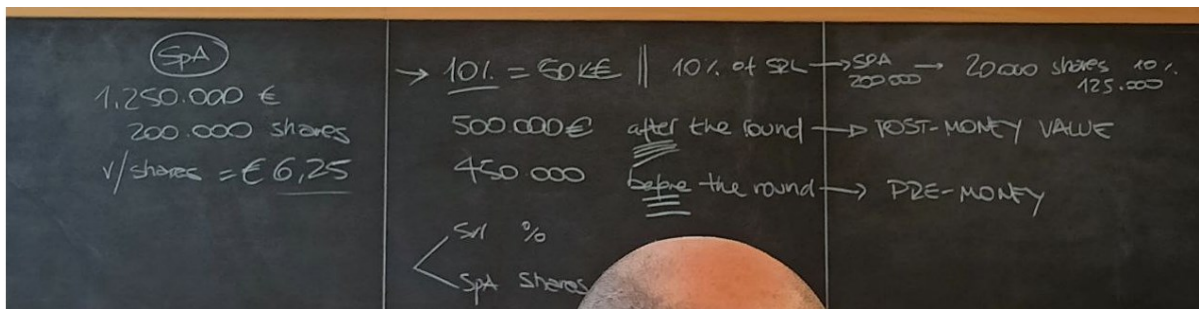 SpA
1.250.000 €
200.000 shares
v/shares = € 6,25
→ 10% = 50K€ || 10% of SRL → SPA 200 000 → 20.000 shares 10% 125.000
500.000€ after the round → POST-MONEY VALUE
450 000 before the round → PRE-MONEY
Srl %
SpA shares